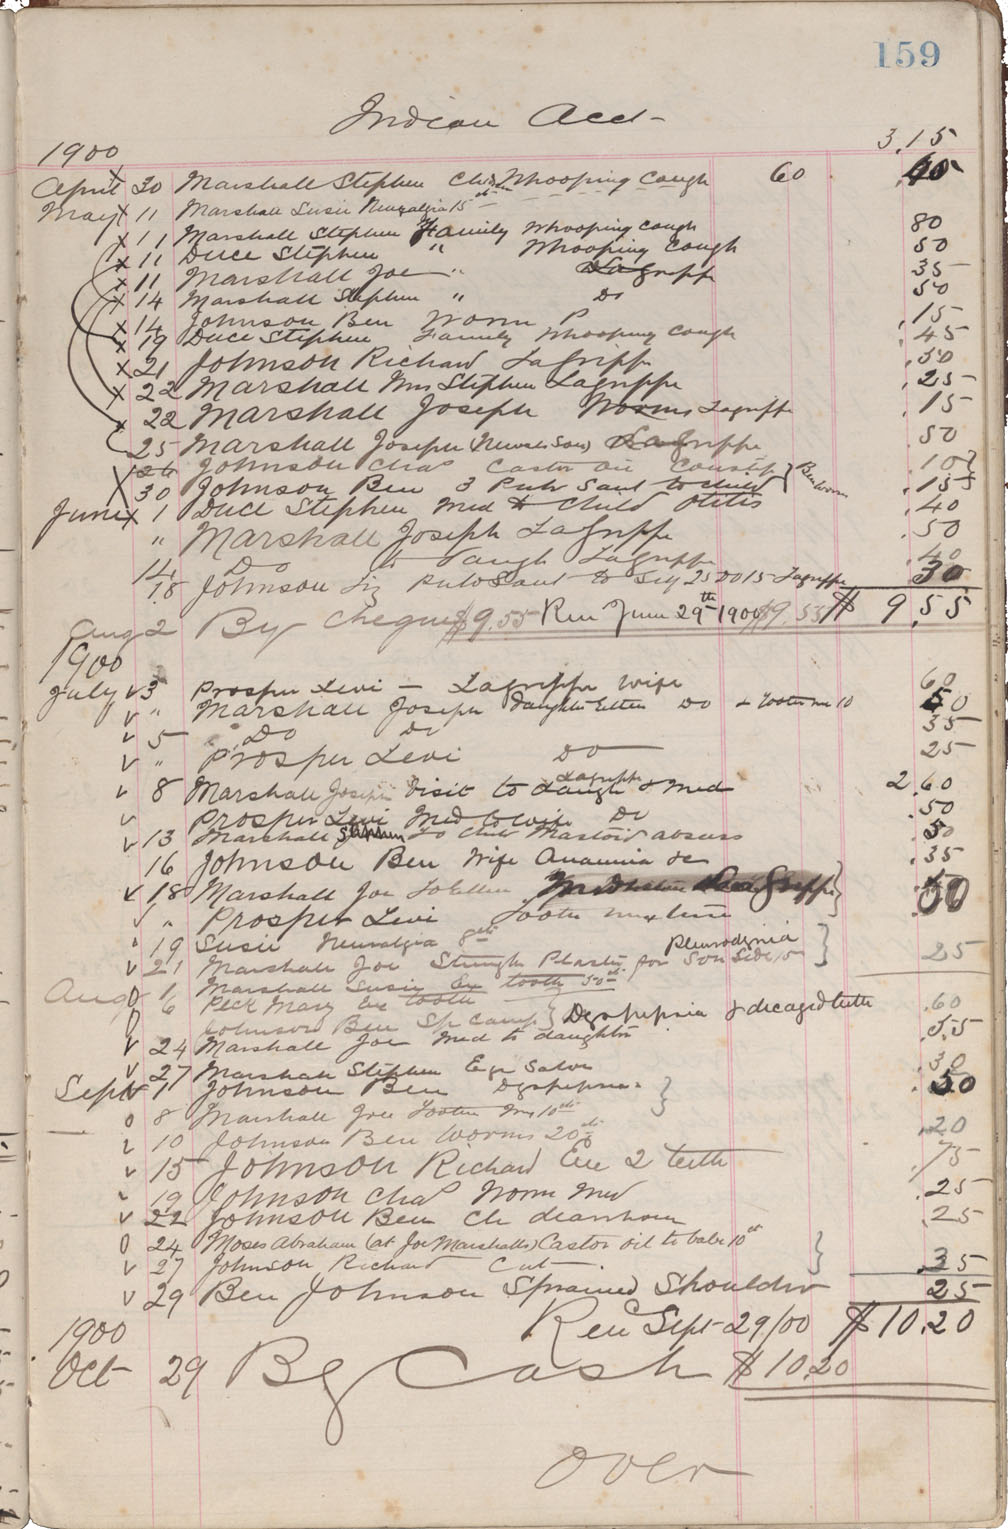 159
Indian Acct
3.15
1900
April x 30 Marshall Stephen Chdn Whooping Cough 60
May x 11 Marshall Susie Neuralgia 15cts
x 11 Marshall Stephen Family Whooping Cough 80
x 11 Duce Stephen " Whooping Cough 50
x 11 Marshall Joe " LaGrippe 35
x 14 Marshall Stephen " Do 50
x 14 Johnson Ben Worm P .15
x 19 Duce Stephen Family Whooping Cough .45
x 21 Johnson Richard LaGrippe .30
x 22 Marshall Mrs Stephen Lagrippe .25
x 22 Marshall Joseph Worms Lagrippe .15
25 Marshall Joseph LaGrippe .50
Johnson Chas Castor Oil Constip } Ben worm .10
x 30 Johnson Ben 3 Pulv Sant to child .15
June x 1 Duce Stephen Med to Child Otitis .40
" Marshall Joseph LaGrippe .50
14 Do to Daugh Lagrippe 40
18 Johnson Liz Pulv Sant to Self 25 Do 15 Lagrippe 30
Aug 2 By Cheque $9.55 Ren June 29th 1900 $9.55 $ 9.55
1900
July v 3 Prosper Levi — Lagrippe wife 60
v " Marshall Joseph Daughter Ellen Do + Tooth mx 10 50
v 5 " Do Do 35
v " Prosper Levi Do 25
v 8 Marshall Joseph Visit to Daugh & Med Lagrippe 2.60
v Prosper Levi Med to wife Do .50
v 13 Marshall Stephen To Child Mastoid abscess .50
16 Johnson Ben Wife Anaemia &c .35
v 18 Marshall Joe To Ellen LaGrippe }
" Prosper Levi Tooth mixture
" 19 Susie Neuralgia 8cts } 25
v 21 Marshall Joe Strength Plaster for Son Side 15 Pleurodynia
Aug 1 Marshall Susie Ex tooth 50cts
6 Peck Mary Ex tooth } .60
Johnson Ben Sp Camp } Dyspepsia & decayed teeth .55
v 24 Marshall Joe Med to daughter
v 27 Marshall Stephen Eye Salve .30
Sept v 1 Johnson Ben Dyspepsia } .50
0 8 Marshall Joe Tooth mx 10cts
10 Johnson Ben Worms 20cts .20
v 15 Johnson Richard Exe 2 teeth .75
19 Johnson Chas Worm Med .25
v 22 Johnson Ben Ch diarrhoea .25
0 24 Moses Abraham (at Joe Marshalls) Castor oil to babe 10cts }
v 27 Johnson Richard Cut .35
v 29 Ben Johnson Sprained Shoulder 25
Ren Sept 29/00 $10.20
1900
Oct 29 By Cash $10.20
Over